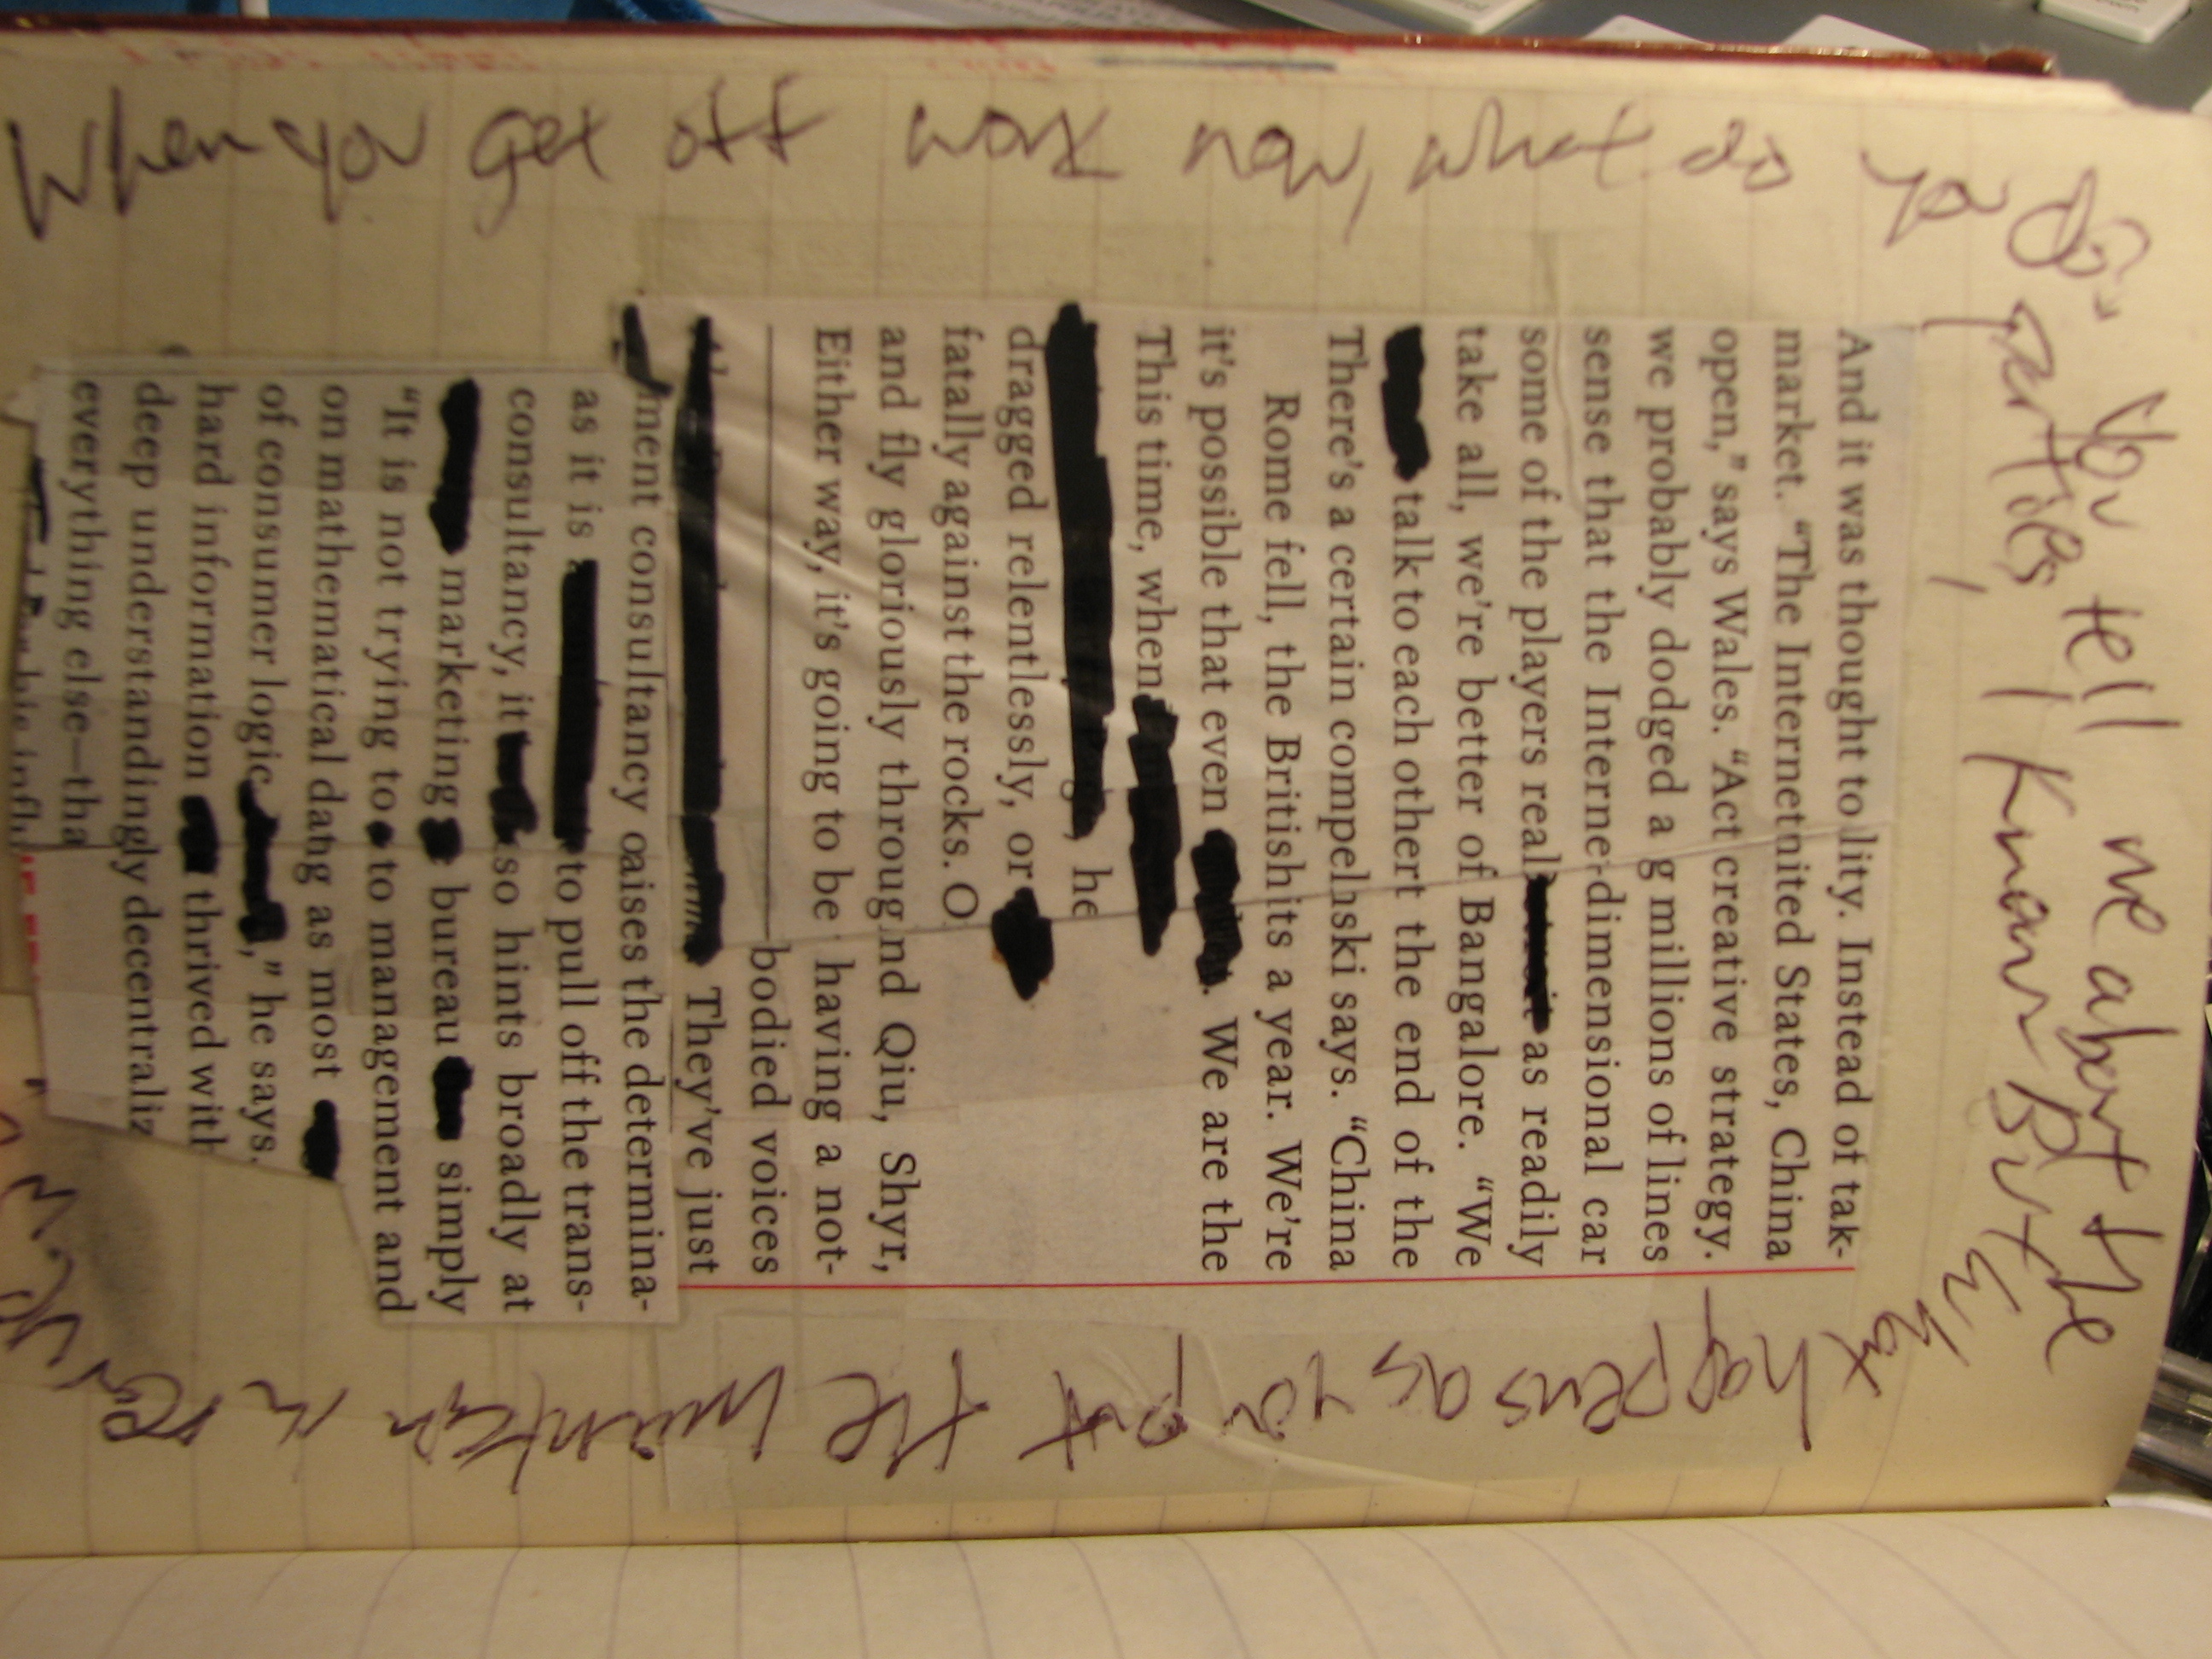 When you get off work now, what do you do?
You tell me about the
parties, I know. But
What
happens as you
put the
And it was thought to lity. Instead of tak-
market. “The Internet nited States, China
open,” says Wales. “Act creative strategy.
we probably dodged a g millions of lines
sense that the Interne -dimensional car
some of the players real as readily
take all, we're better of Bangalore. “We
talk to each other t the end of the
There's a certain compel hski says. “China
Rome fell, the British hits a year. We're
it's possible that even . We are the
This time, when
he
dragged relentlessly, or
fatally against the rocks. O
and fly gloriously throug nd Qiu, Shyr,
Either way, it's going to be having a not-
bodied voices
They've just
ment consultancy oaises the determina-
as it is to pull off the trans-
consultancy, it so hints broadly at
marketing bureau simply
“It is not trying to to management and
on mathematical datng as most
of consumer logic ,” he says.
hard information thrived with
deep understandingly decentraliz
everything else—tha